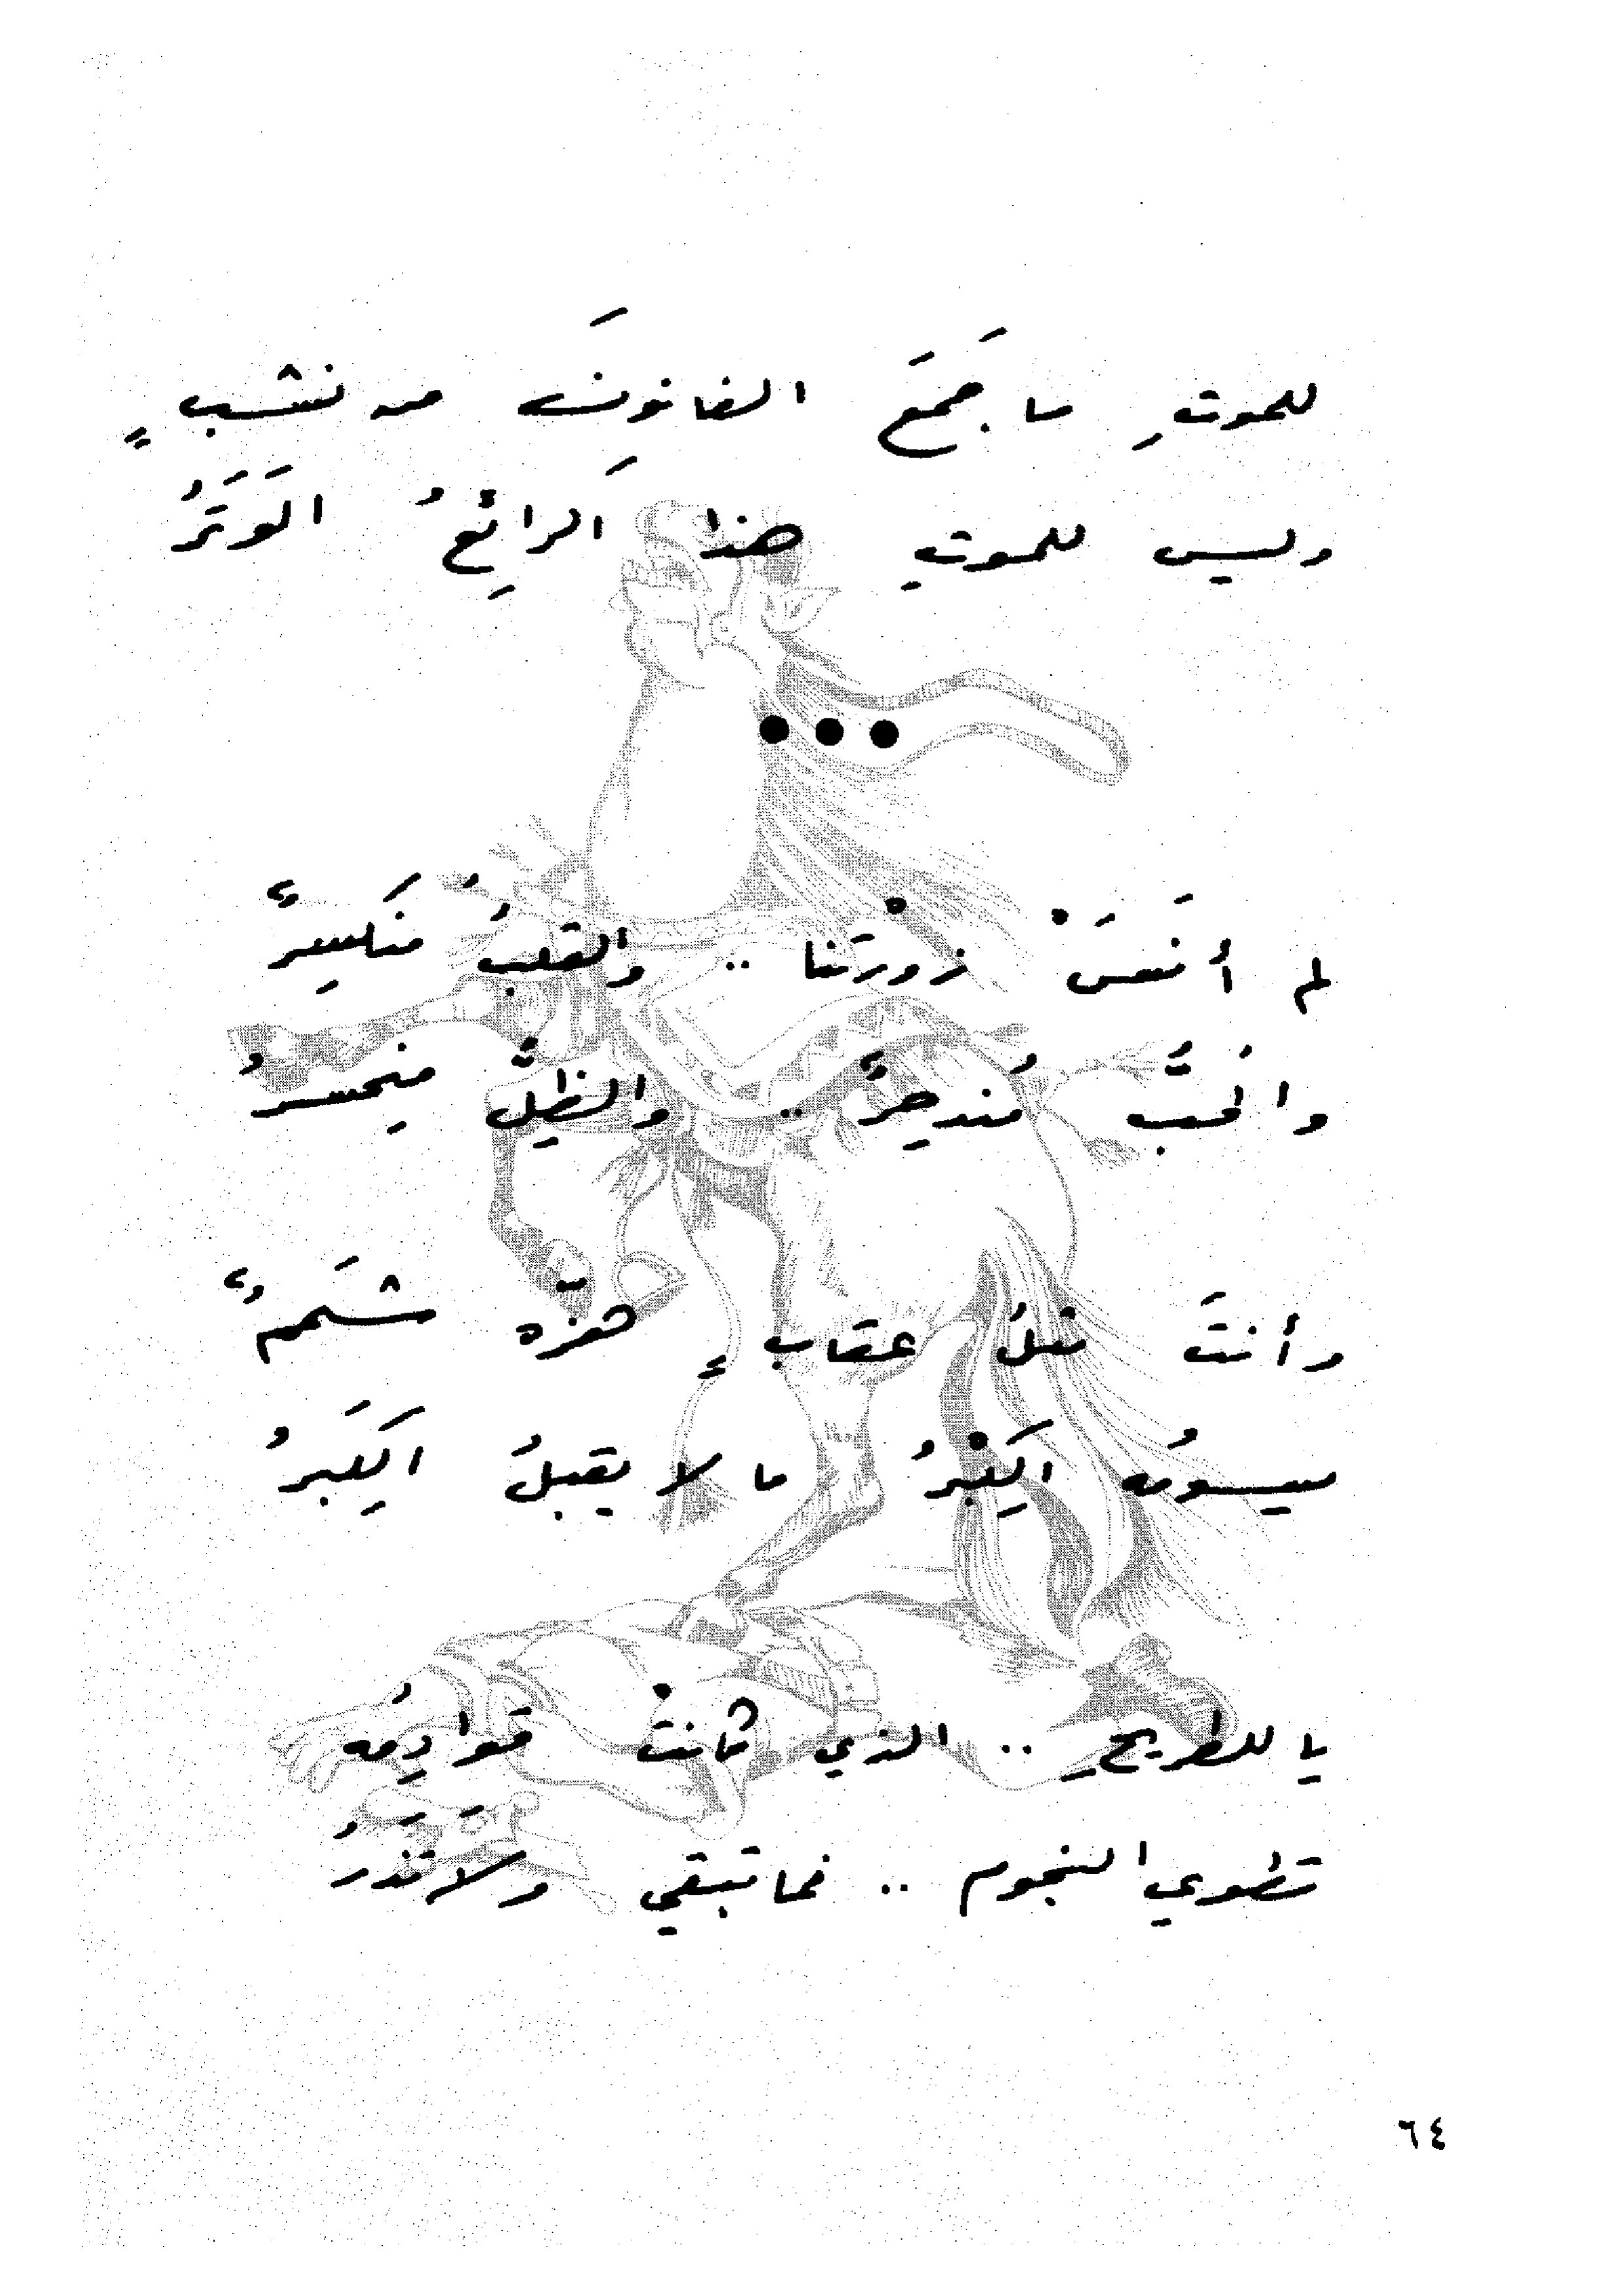 للموتِ ما جَمَعَ الفانونَ من نشبٍ
وليس للموتِ هذا الرائِعُ الوَتَرُ
●●●
لم أنَسَْ زورَْتنا .. والقلبُ منكسِرٌ
والحبُّ مُندحِرٌ .. والظِلُّ منحسِرُ
وأنتَ مثلُ عقابٍ هزّه شَممٌ
يسومُه الكِبْرُ ما لا يقبلُ الكِبَرُ
يا للطريحِ .. الذي كانتْ قوادِمُه
تطوي النجوم .. فما تبقي ولا تَذَرُ
٦٤